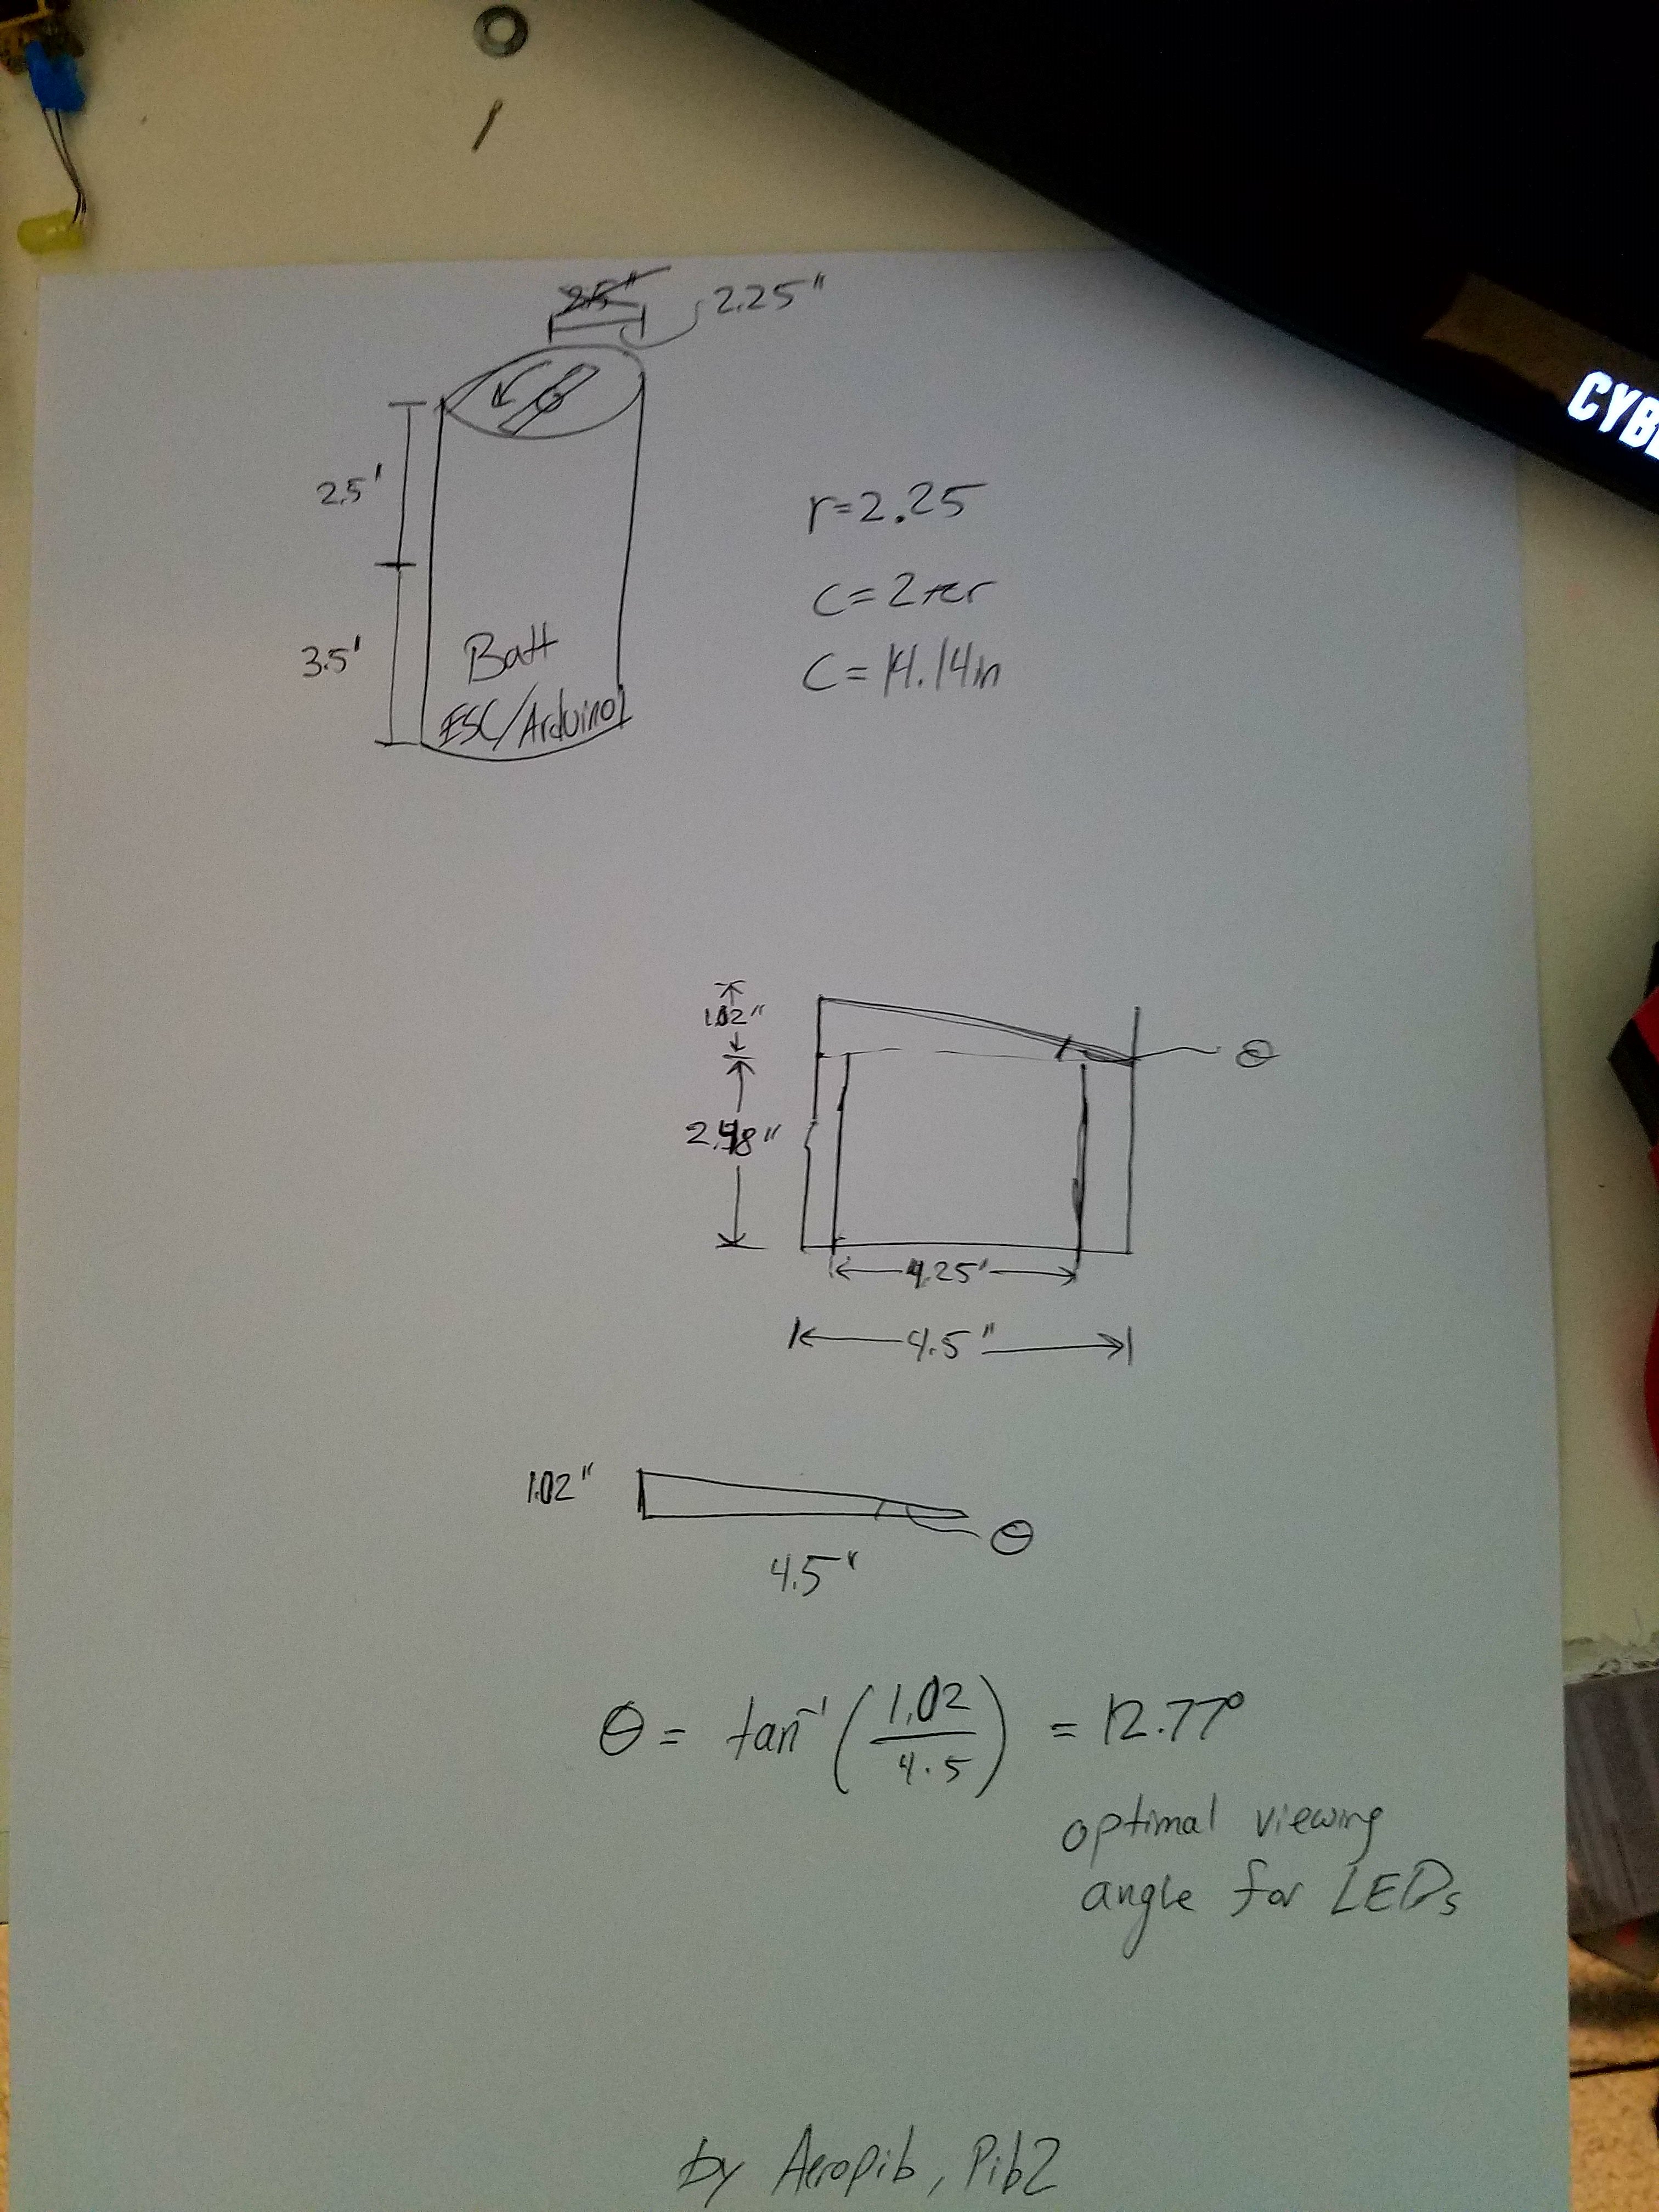 2.25"
2.5'
3.5'
Batt
ESC/Arduino
r=2.25
C=2πr
C=14.14in
1.02"
2.48"
4.25"
4.5"
θ
1.02"
4.5"
θ
θ = tan⁻¹(1.02/4.5) = 12.77°
optimal viewing
angle for LEDs
by Aropib, Pib2
CYBE